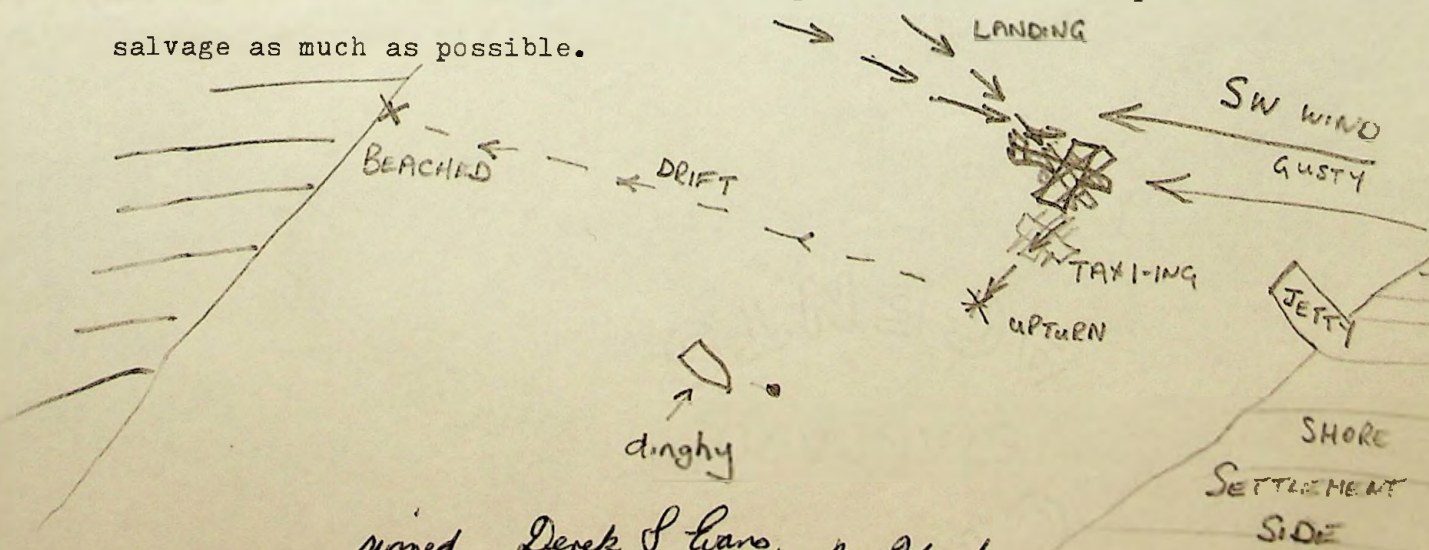 salvage as much as possible.
LANDING
SW WIND
GUSTY
BEACHED
DRIFT
TAXI-ING
JETTY
UPTURN
dinghy
SHORE
SETTLEMENT
SIDE
signed Derek S Evans.